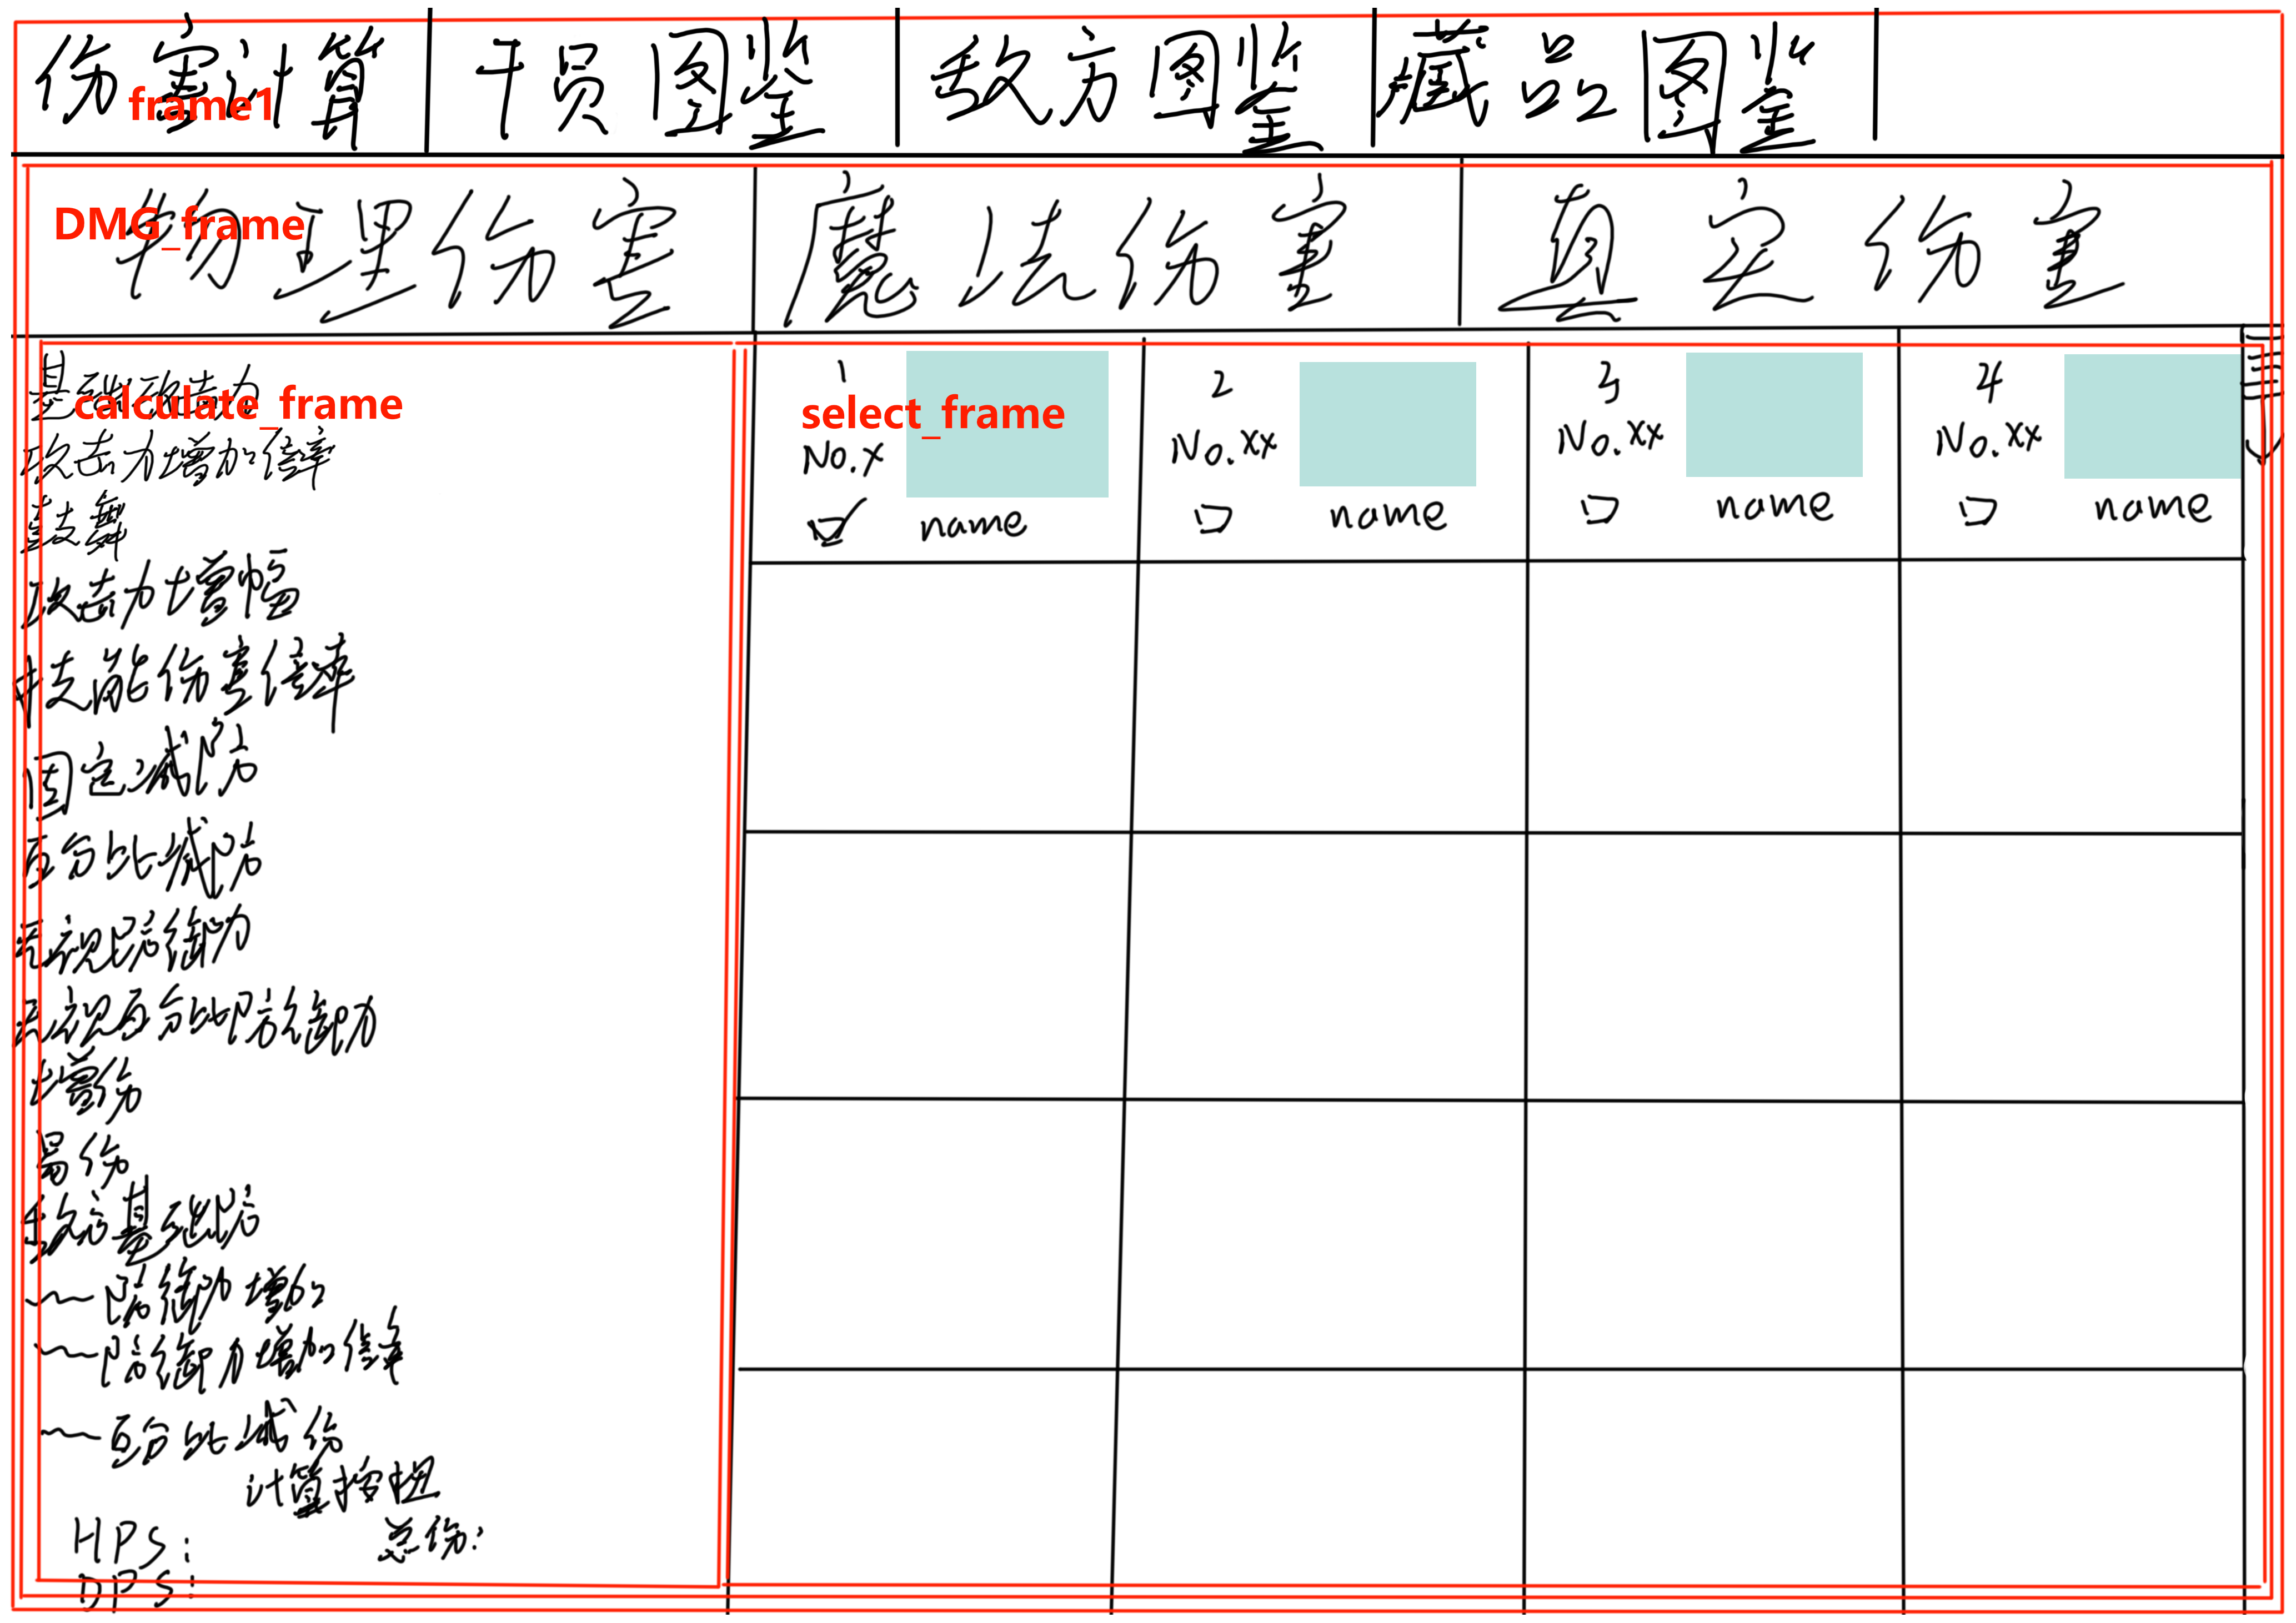 伤害计算 干员图鉴 敌方图鉴 藏品图鉴
frame1
物理伤害 魔法伤害 真实伤害
DMG_frame
基础攻击力
calculate_frame
攻击力增加倍率
鼓舞
攻击力增幅
技能伤害倍率
固定减防
百分比减防
无视防御力
无视百分比防御力
增伤
易伤
敌方基础防
~防御力增加
~防御力增加倍率
~百分比减伤
计算按钮
HPS: 总伤:
DPS:
select_frame
1 No.x name
2 No.xx name
3 No.xx name
4 No.xx name